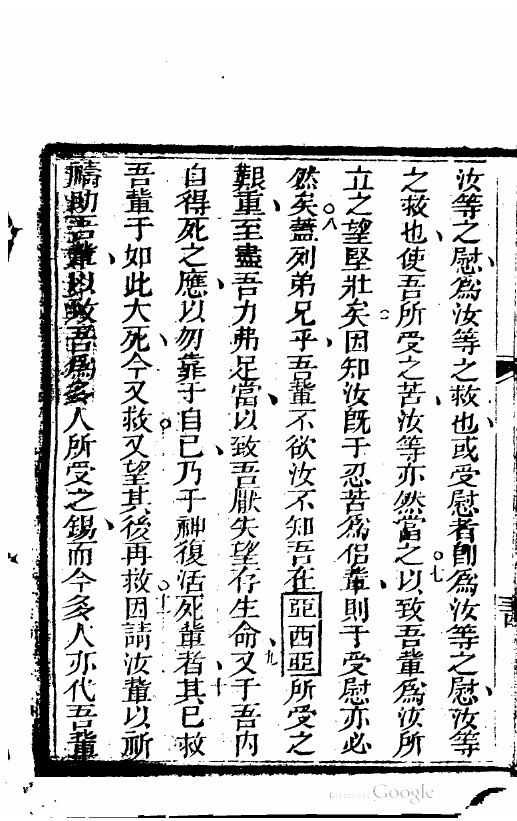 汝等之慰爲汝等之救也或受慰者卽爲汝等之慰汝等
之救也使吾所受之苦汝等亦然當之以致吾輩爲汝所
七
立之望堅壯矣因知汝旣于忍苦爲侶輩則于受慰亦必
然矣蓋列弟兄乎吾輩不欲汝不知吾在亞西亞所受之
八
艱重至盡吾力弗足當以致吾厭失望存生命又于吾內
九
自得死之應以勿靠于自己乃于神復活死輩者其已救
十
吾輩于如此大死今又救又望其後再救因請汝輩以祈
十一
禱助吾輩以致吾爲多人所受之錫而今多人亦代吾輩
Digitized by Google